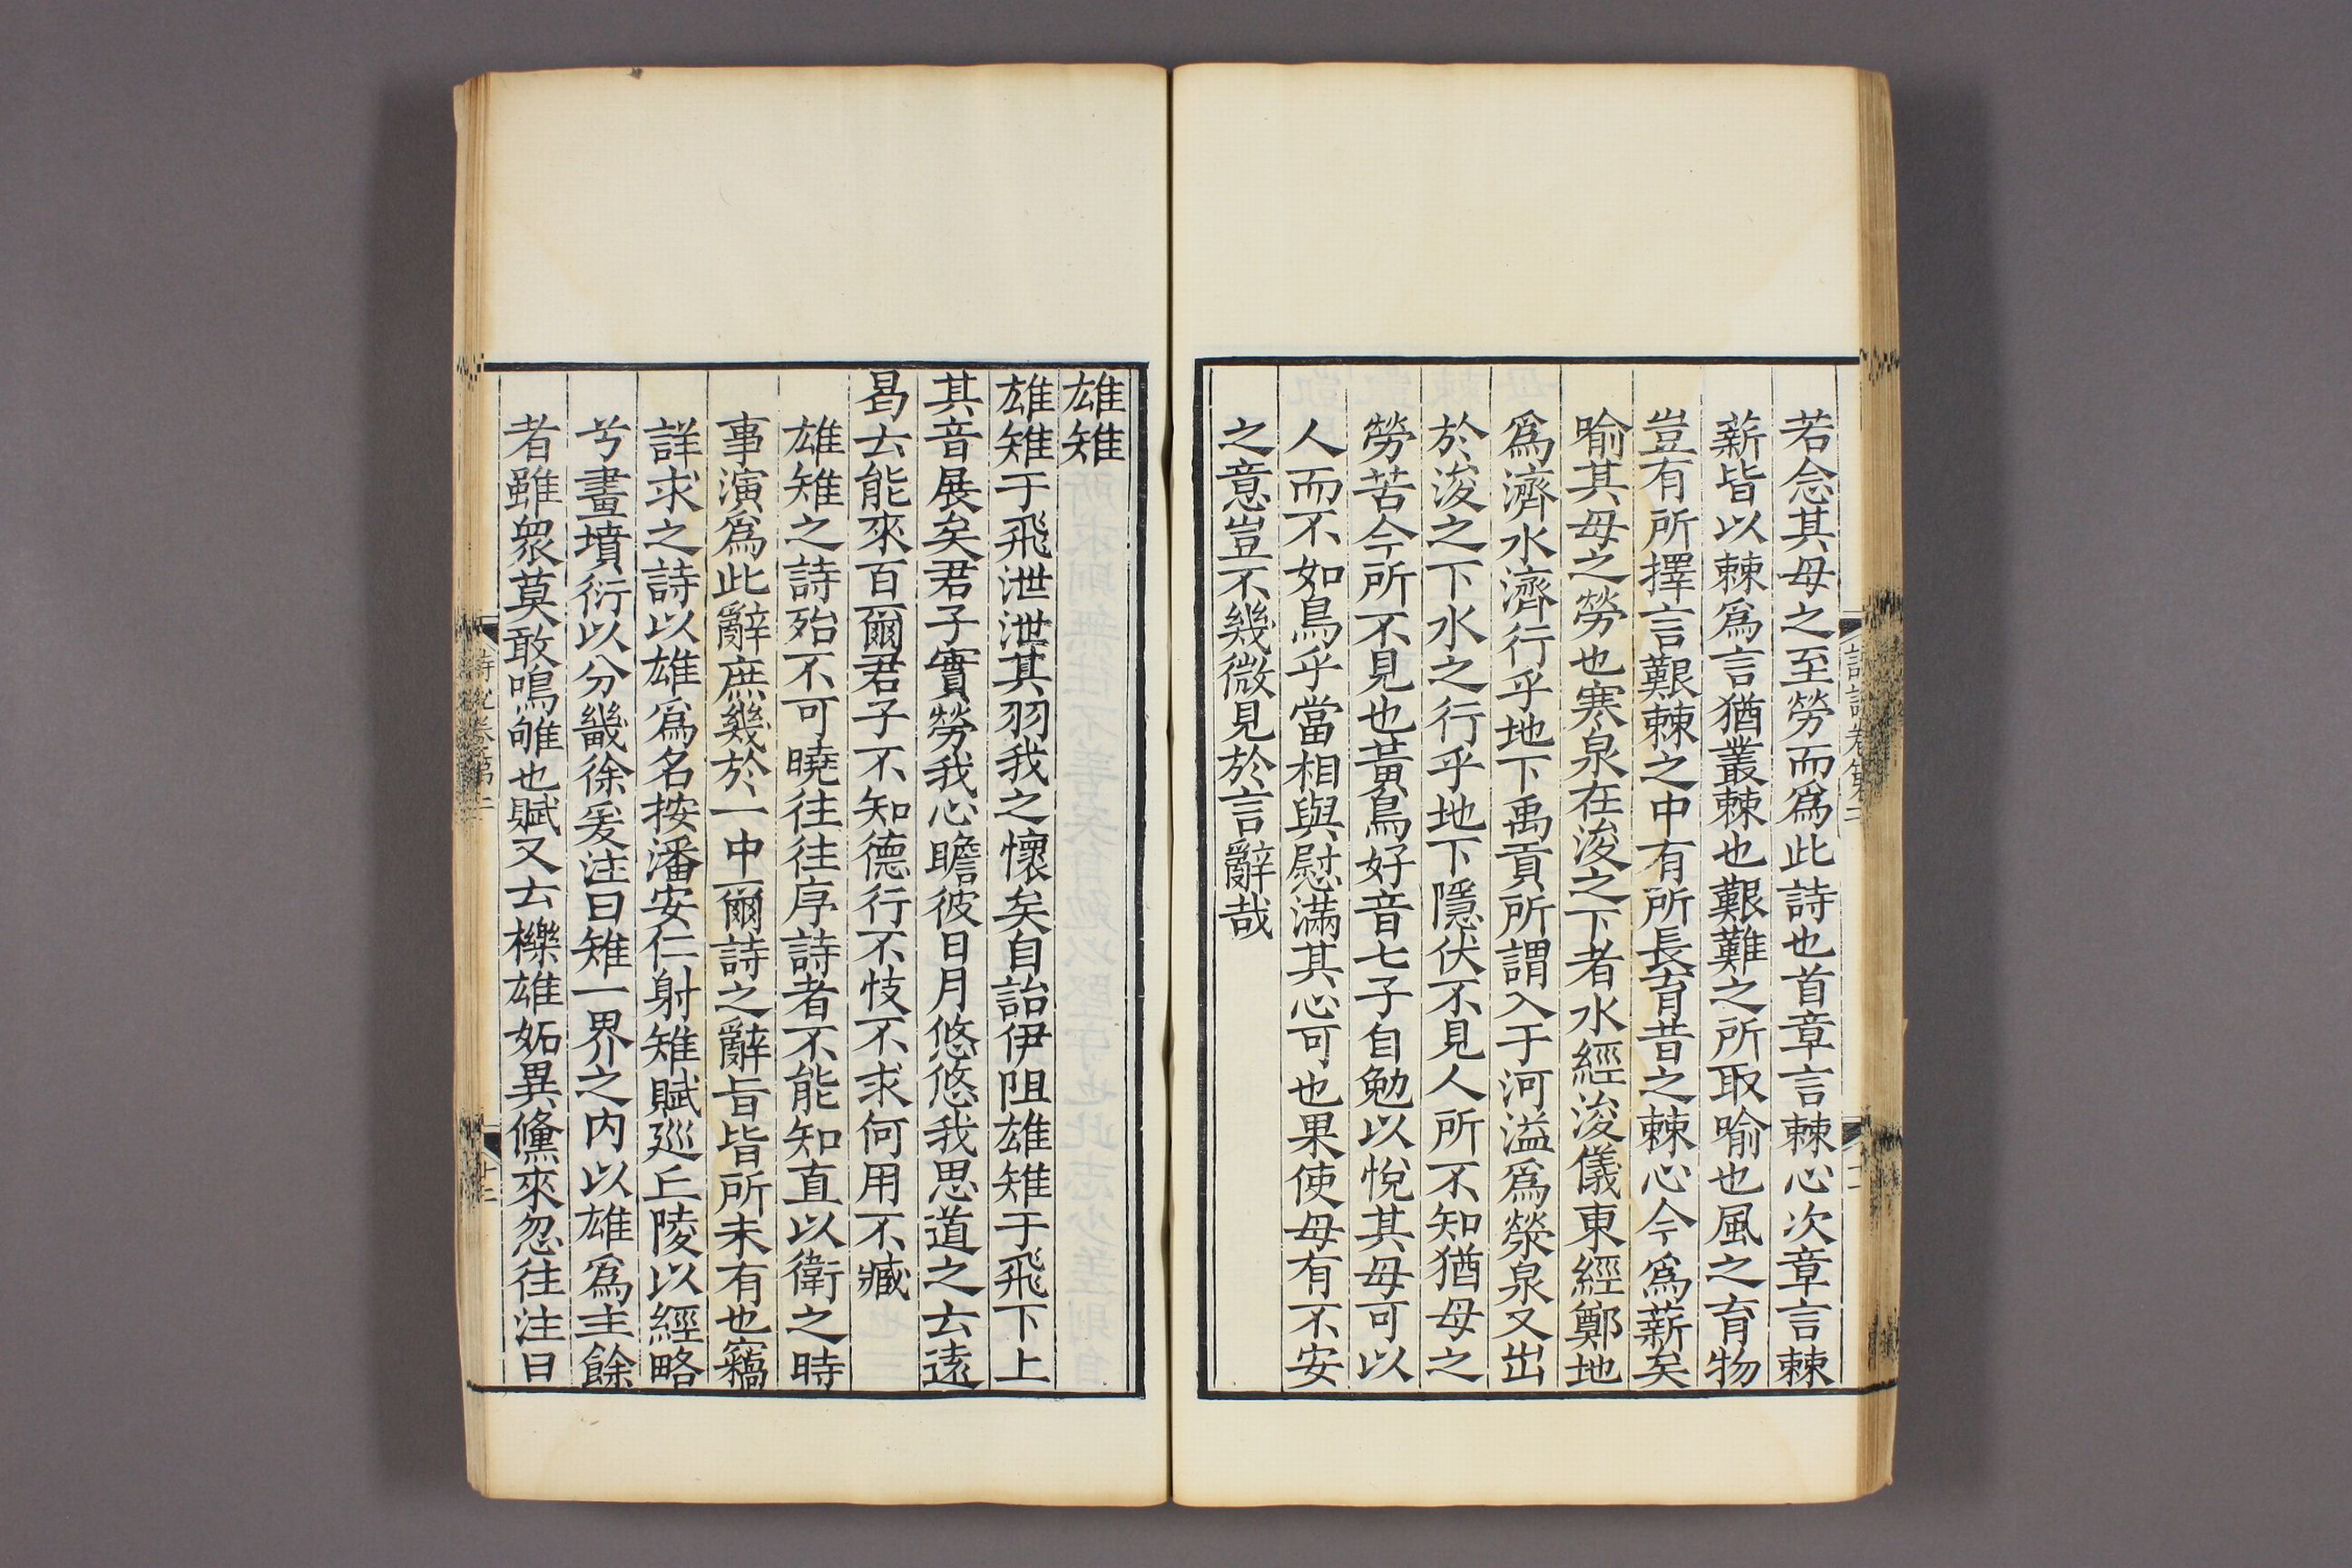 若念其母之至勞而爲此詩也首章言棘心次章言棘
薪皆以棘爲言猶叢棘也艱難之所取喻也風之育物
豈有所擇言艱棘之中有所長育昔之棘心今爲薪矣
喻其母之勞也寒泉在浚之下者水經浚儀東經鄭地
爲濟水濟行乎地下禹貢所謂入于河溢爲滎泉又出
於浚之下水之行乎地下隱伏不見人所不知猶母之
勞苦今所不見也黃鳥好音七子自勉以悅其母可以
人而不如鳥乎當相與慰滿其心可也果使母有不安
之意豈不幾微見於言辭哉
雄雉
雄雉于飛泄泄其羽我之懷矣自詒伊阻雄雉于飛下上
其音展矣君子實勞我心瞻彼日月悠悠我思道之云遠
曷云能來百爾君子不知德行不忮不求何用不臧
雄雉之詩殆不可曉往往序詩者不能知直以衛之時
事演爲此辭庶幾於一中爾詩之辭旨皆所未有也竊
詳求之詩以雄爲名按潘安仁射雉賦廵丘陵以經略
兮畫墳衍以分畿徐爰注曰雉一界之內以雄爲主餘
者雖衆莫敢鳴雊也賦又云櫟雄妬異儵來忽往注曰
詩說卷第二
十二